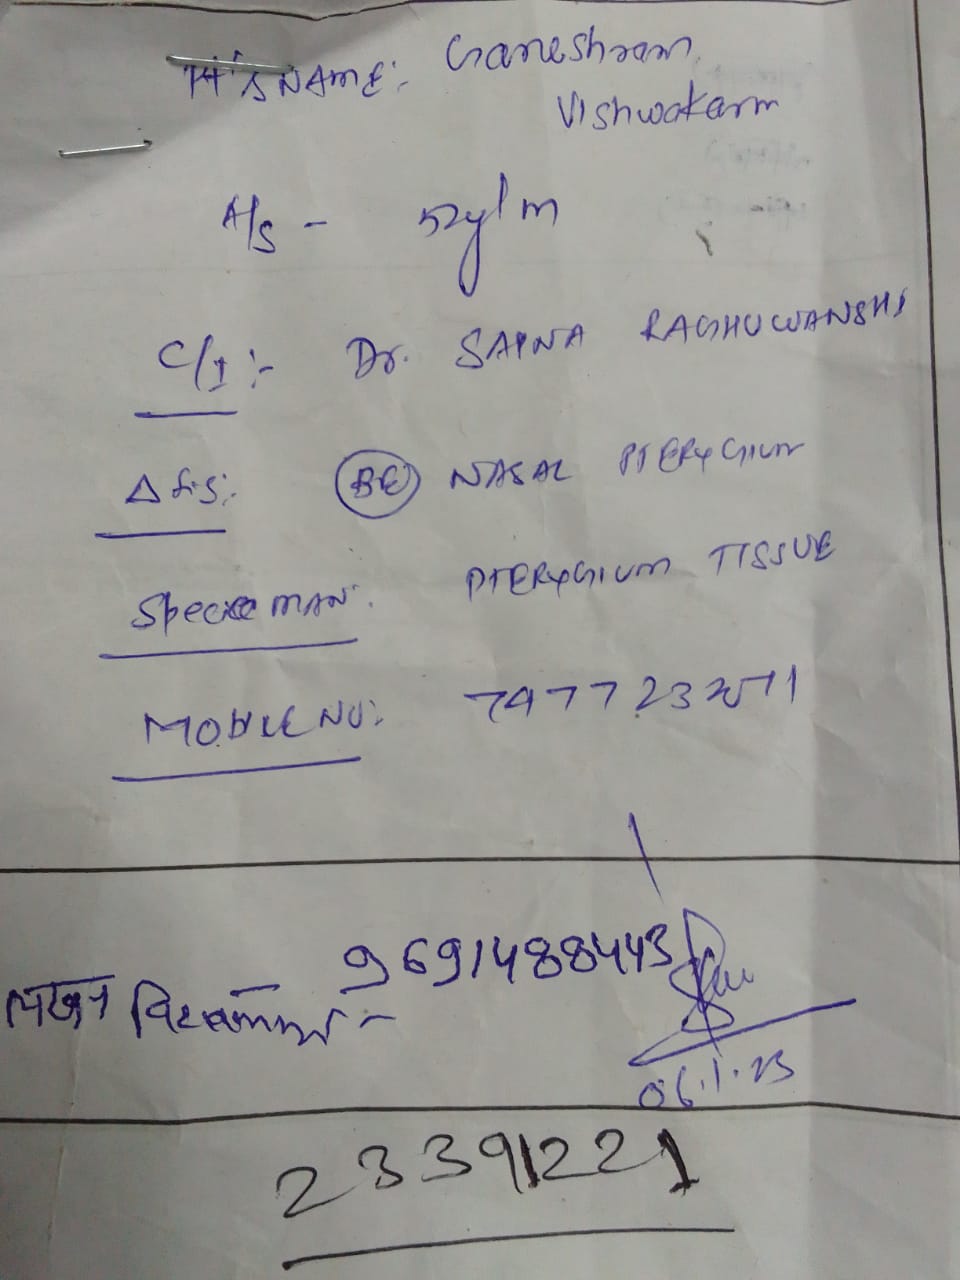 Pt's NAME:- Ganeshram
Vishwakarm
A/S - 52y/m
C/I :- Dr. SAPNA RAGHUWANSHI
Δsis:- BE NASAL PTERYGIUM
Specieman: PTERYGIUM TISSUE
MOBILE NO: 7477232571
9691488443
06.1.23
23391221